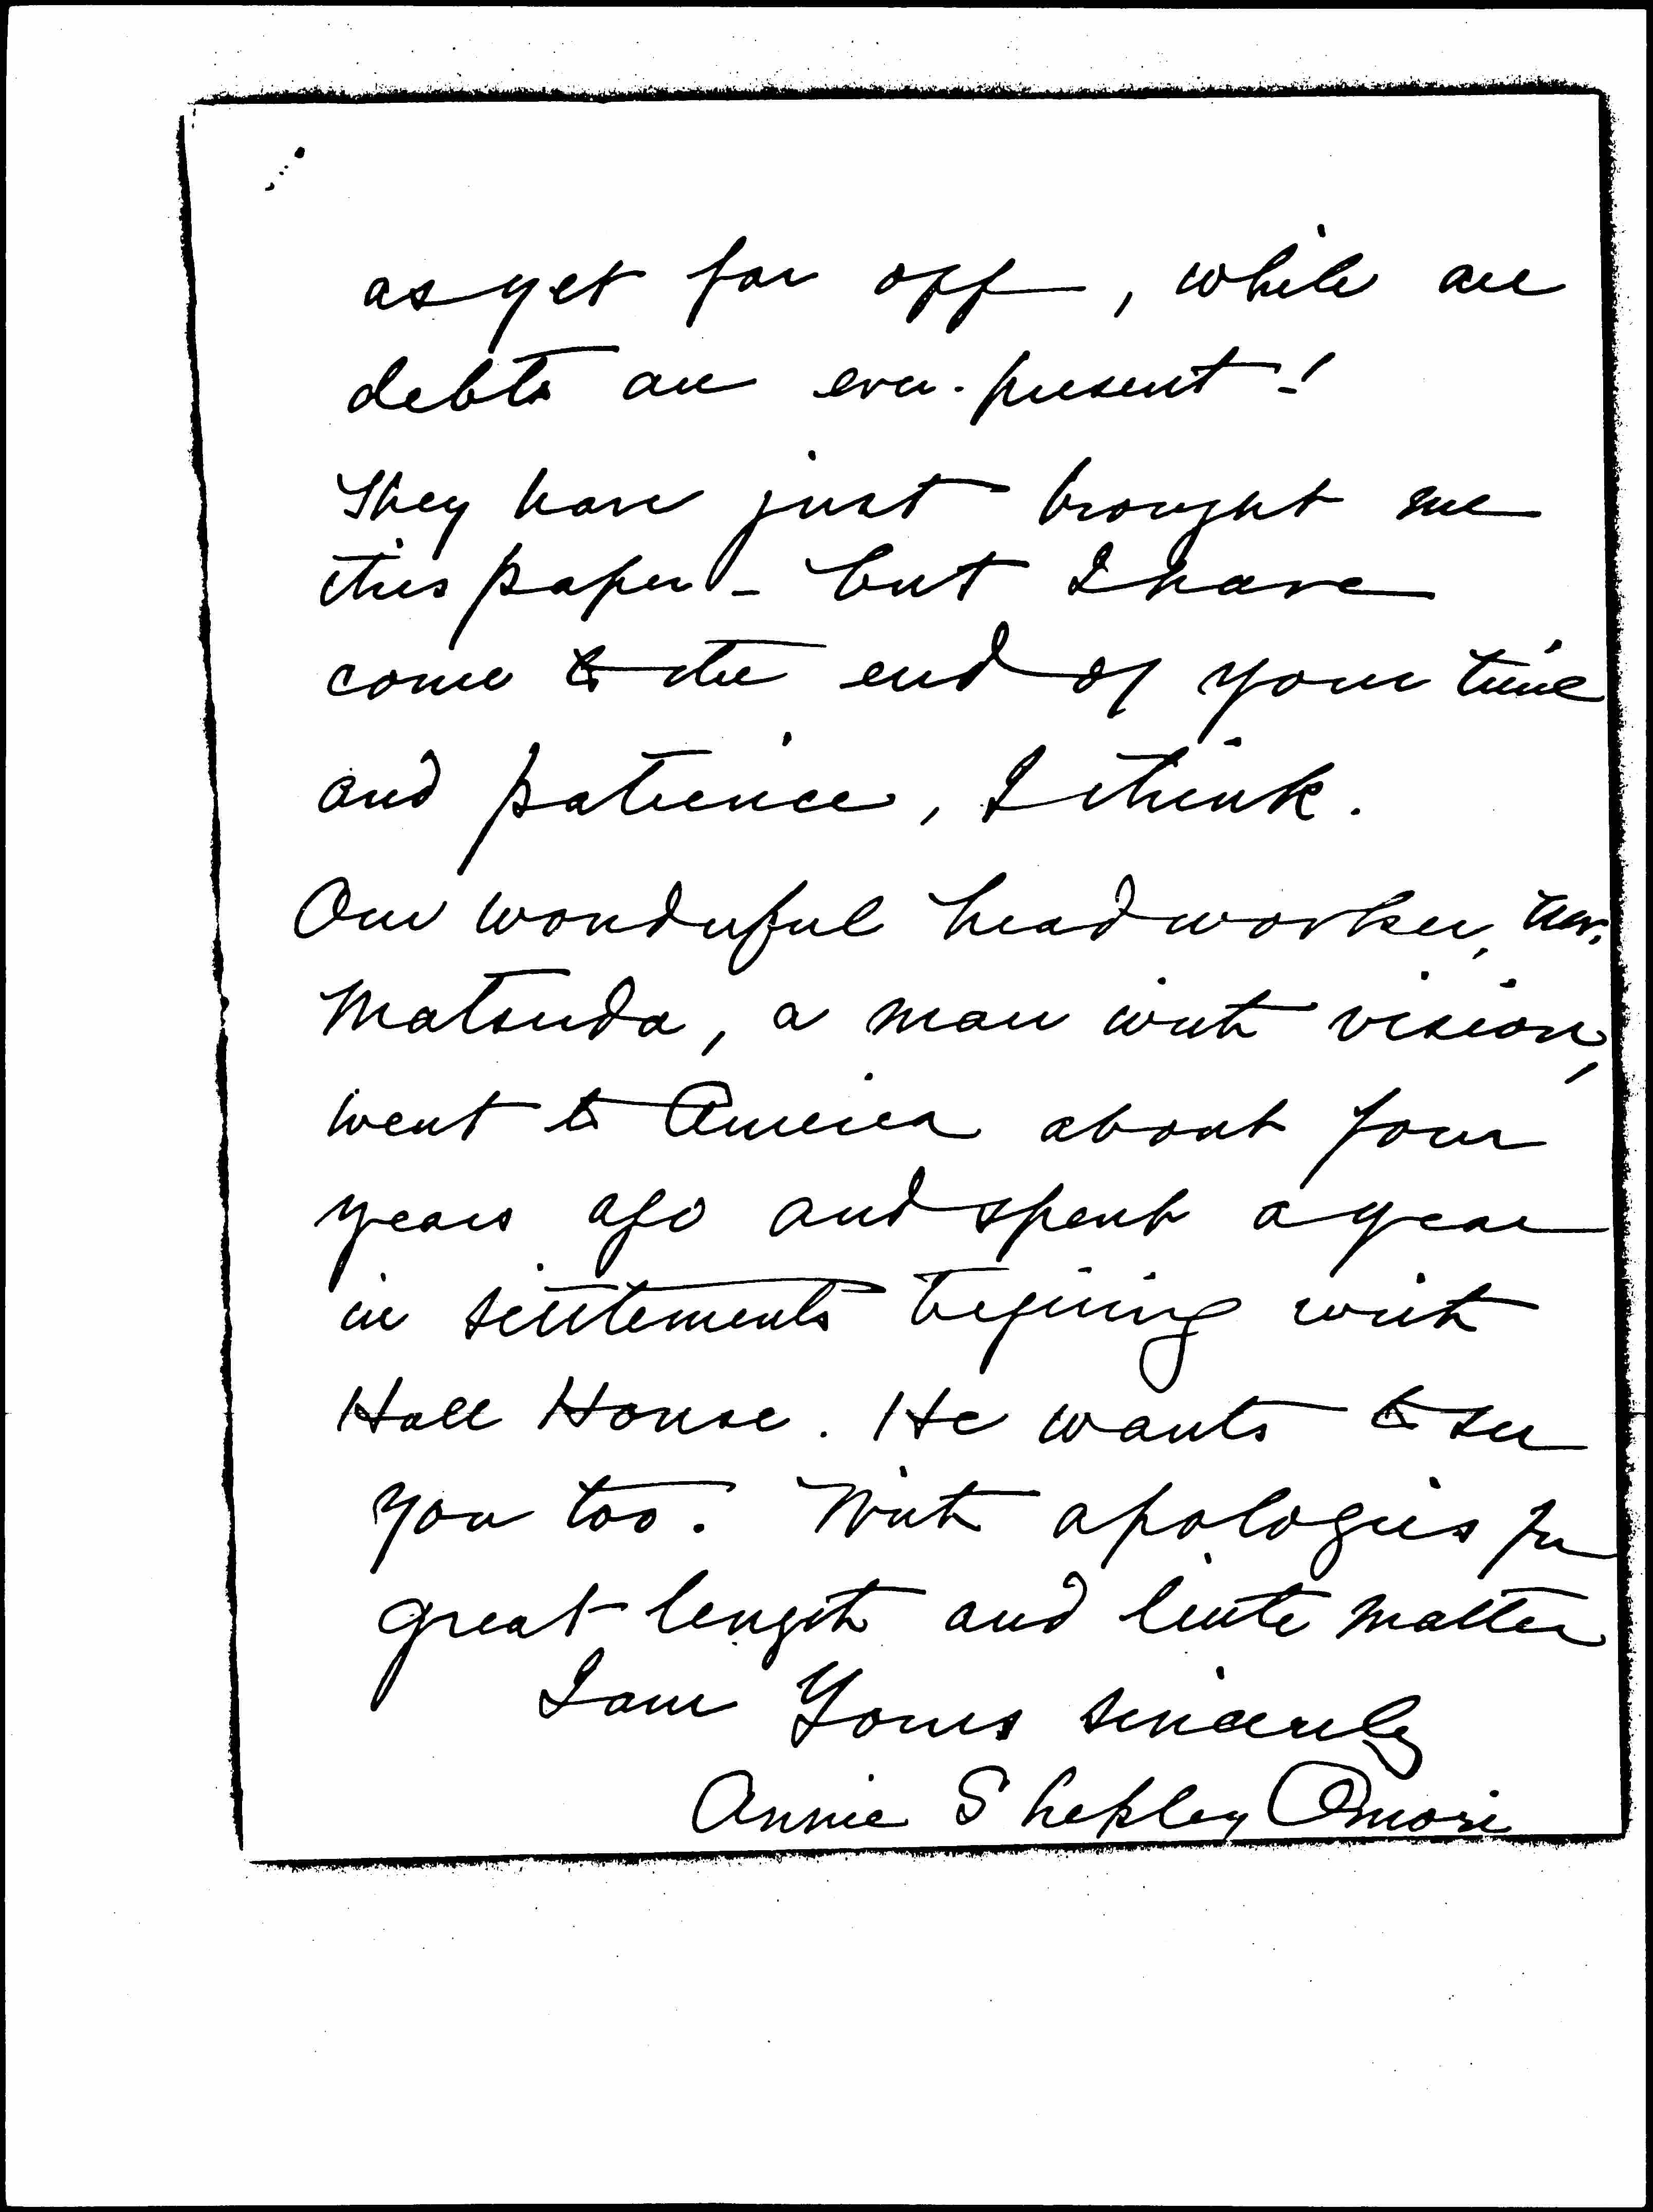 as yet far off, while all
debts are ever-present!
They have just brought me
this paper - but I have
come to the end of your time
and patience, I think.
Our wonderful headworker, Mr.
Matsuda, a man with vision,
went to America about four
years ago and spent a year
in settlements begining with
Hall House. He wants to see
you too. With apologies for
great length and little matter
I am Yours sincerely
Annie Shepley Omori